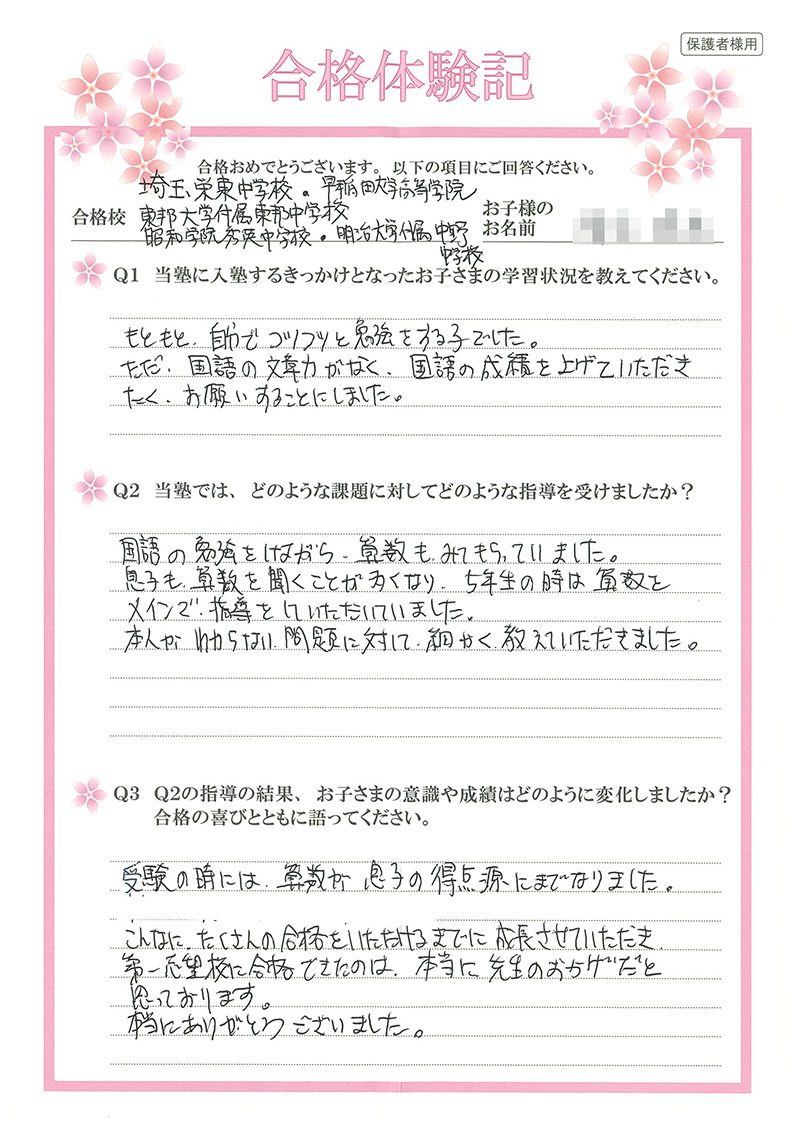 保護者様用
合格体験記
合格おめでとうございます。以下の項目にご回答ください。
合格校
埼玉栄東中学校。早稲田大学高等学院
東邦大学付属東邦中学校
昭和学院秀英中学校。明治大学付属中野
中学校
お子様の
お名前
Q1 当塾に入塾するきっかけとなったお子さまの学習状況を教えてください。
もともと、自分でコツコツと勉強をする子でした。
ただ、国語の文章力がなく、国語の成績を上げていただき
たく、お願いすることにしました。
Q2 当塾では、どのような課題に対してどのような指導を受けましたか？
国語の勉強をしながら、算数もみてもらっていました。
息子も、算数を聞くことが多くなり、5年生の時は算数を
メインで、指導をしていただいていました。
本人がわからない問題に対して、細かく教えていただきました。
Q3 Q2の指導の結果、お子さまの意識や成績はどのように変化しましたか？
合格の喜びとともに語ってください。
受験の時には、算数が息子の得点源にまでなりました。
こんなに、たくさんの合格をいただけるまでに成長させていただき、
第一志望校に合格できたのは、本当に先生のおかげだと
思っております。
本当にありがとうございました。